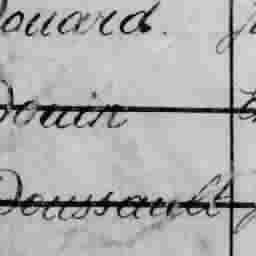 Douard.
Douin
Doussault